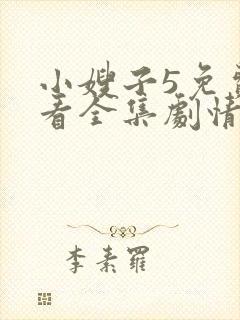 小嫂子5免
看全集劇情
李素羅